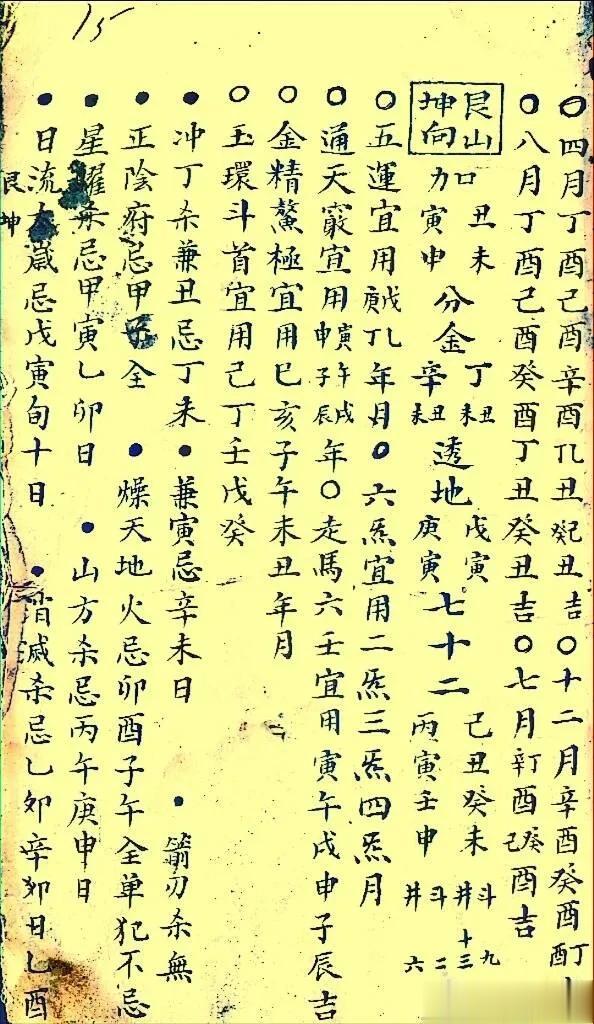 15
○四月丁酉己酉辛酉丁丑癸丑吉○十二月辛酉癸酉丁酉
○八月丁酉己酉癸酉丁丑癸丑吉○七月辛酉丁酉己酉癸酉吉
艮山坤向 加丑未寅申 分金 丁丑丁未辛丑辛未 透地 戊寅庚寅 七十二 己丑癸未丙寅壬申 斗九井十三斗二井六
○五運宜用戊庚丁乙年月○六炁宜用二炁三炁四炁月
○通天竅宜用寅午戌申子辰年○走馬六壬宜用寅午戌申子辰吉
○金精鰲極宜用巳亥子午未丑年月
○玉環斗首宜用己丁壬戊癸
●冲丁杀兼丑忌丁未●兼寅忌辛未日●箭刃杀無
●正陰府忌甲子全●燥天地火忌卯酉子午全单犯不忌
●星曜杀忌甲寅乙卯日●山方杀忌丙午庚申日
●日流太歲忌戊寅旬十日●消滅杀忌乙卯辛卯日乙酉
艮坤